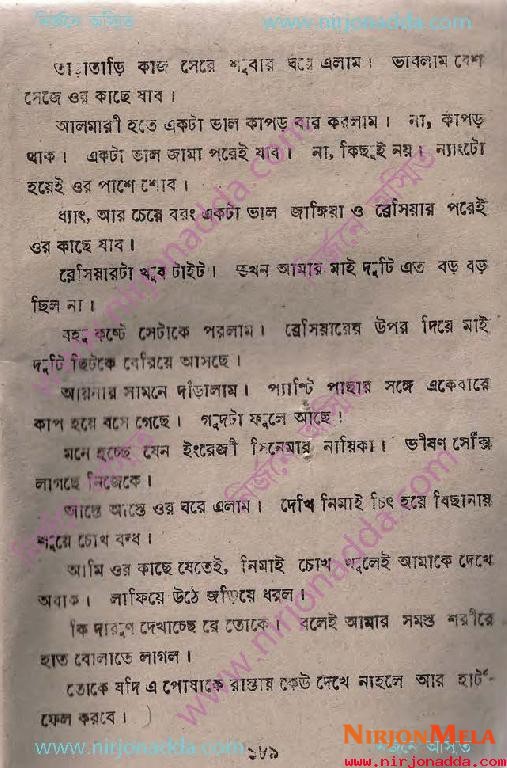 নির্জনে অস্মিত www.nirjonadda.com
তাড়াতাড়ি কাজ সেরে শুবার ঘরে এলাম। ভাবলাম বেশ
সেজে ওর কাছে যাব।
আলমারী হতে একটা ভাল কাপড় বার করলাম। না, কাপড়
থাক। একটা ভাল জামা পরেই যাব। না, কিছুই নয়। ন্যাংটো
হয়েই ওর পাশে শোব।
ধ্যাৎ, আর চেয়ে বরং একটা ভাল জাঙ্গিয়া ও ব্রেসিয়ার পরেই
ওর কাছে যাব।
ব্রেসিয়ারটা খুব টাইট। তখন আমার মাই দুটি এত বড় বড়
ছিল না।
বহু কষ্টে সেটাকে পরলাম। ব্রেসিয়ারের উপর দিয়ে মাই
দুটি ছিটকে বেরিয়ে আসছে।
আয়নার সামনে দাঁড়ালাম। প্যান্টি পাছার সঙ্গে একেবারে
কাপ হয়ে বসে গেছে। গুদটা ফুলে আছে।
মনে হচ্ছে যেন ইংরেজী সিনেমার নায়িকা। ভীষণ সেক্সি
লাগছে নিজেকে।
আস্তে আস্তে ওর ঘরে এলাম। দেখি নিমাই চিৎ হয়ে বিছানায়
শুয়ে চোখ বন্ধ।
আমি ওর কাছে যেতেই, নিমাই চোখ খুলেই আমাকে দেখে
অবাক। লাফিয়ে উঠে জড়িয়ে ধরল।
কি দারুণ দেখাচ্ছে রে তোকে। বলেই আমার সমস্ত শরীরে
হাত বোলাতে লাগল।
তোকে যদি এ পোষাকে রাস্তায় কেউ দেখে নাহলে আর হার্ট-
ফেল করবে।
www.nirjonadda.com ১৮৯ নির্জনে অস্মিত
NIRJONMELA
www.nirjonadda.com